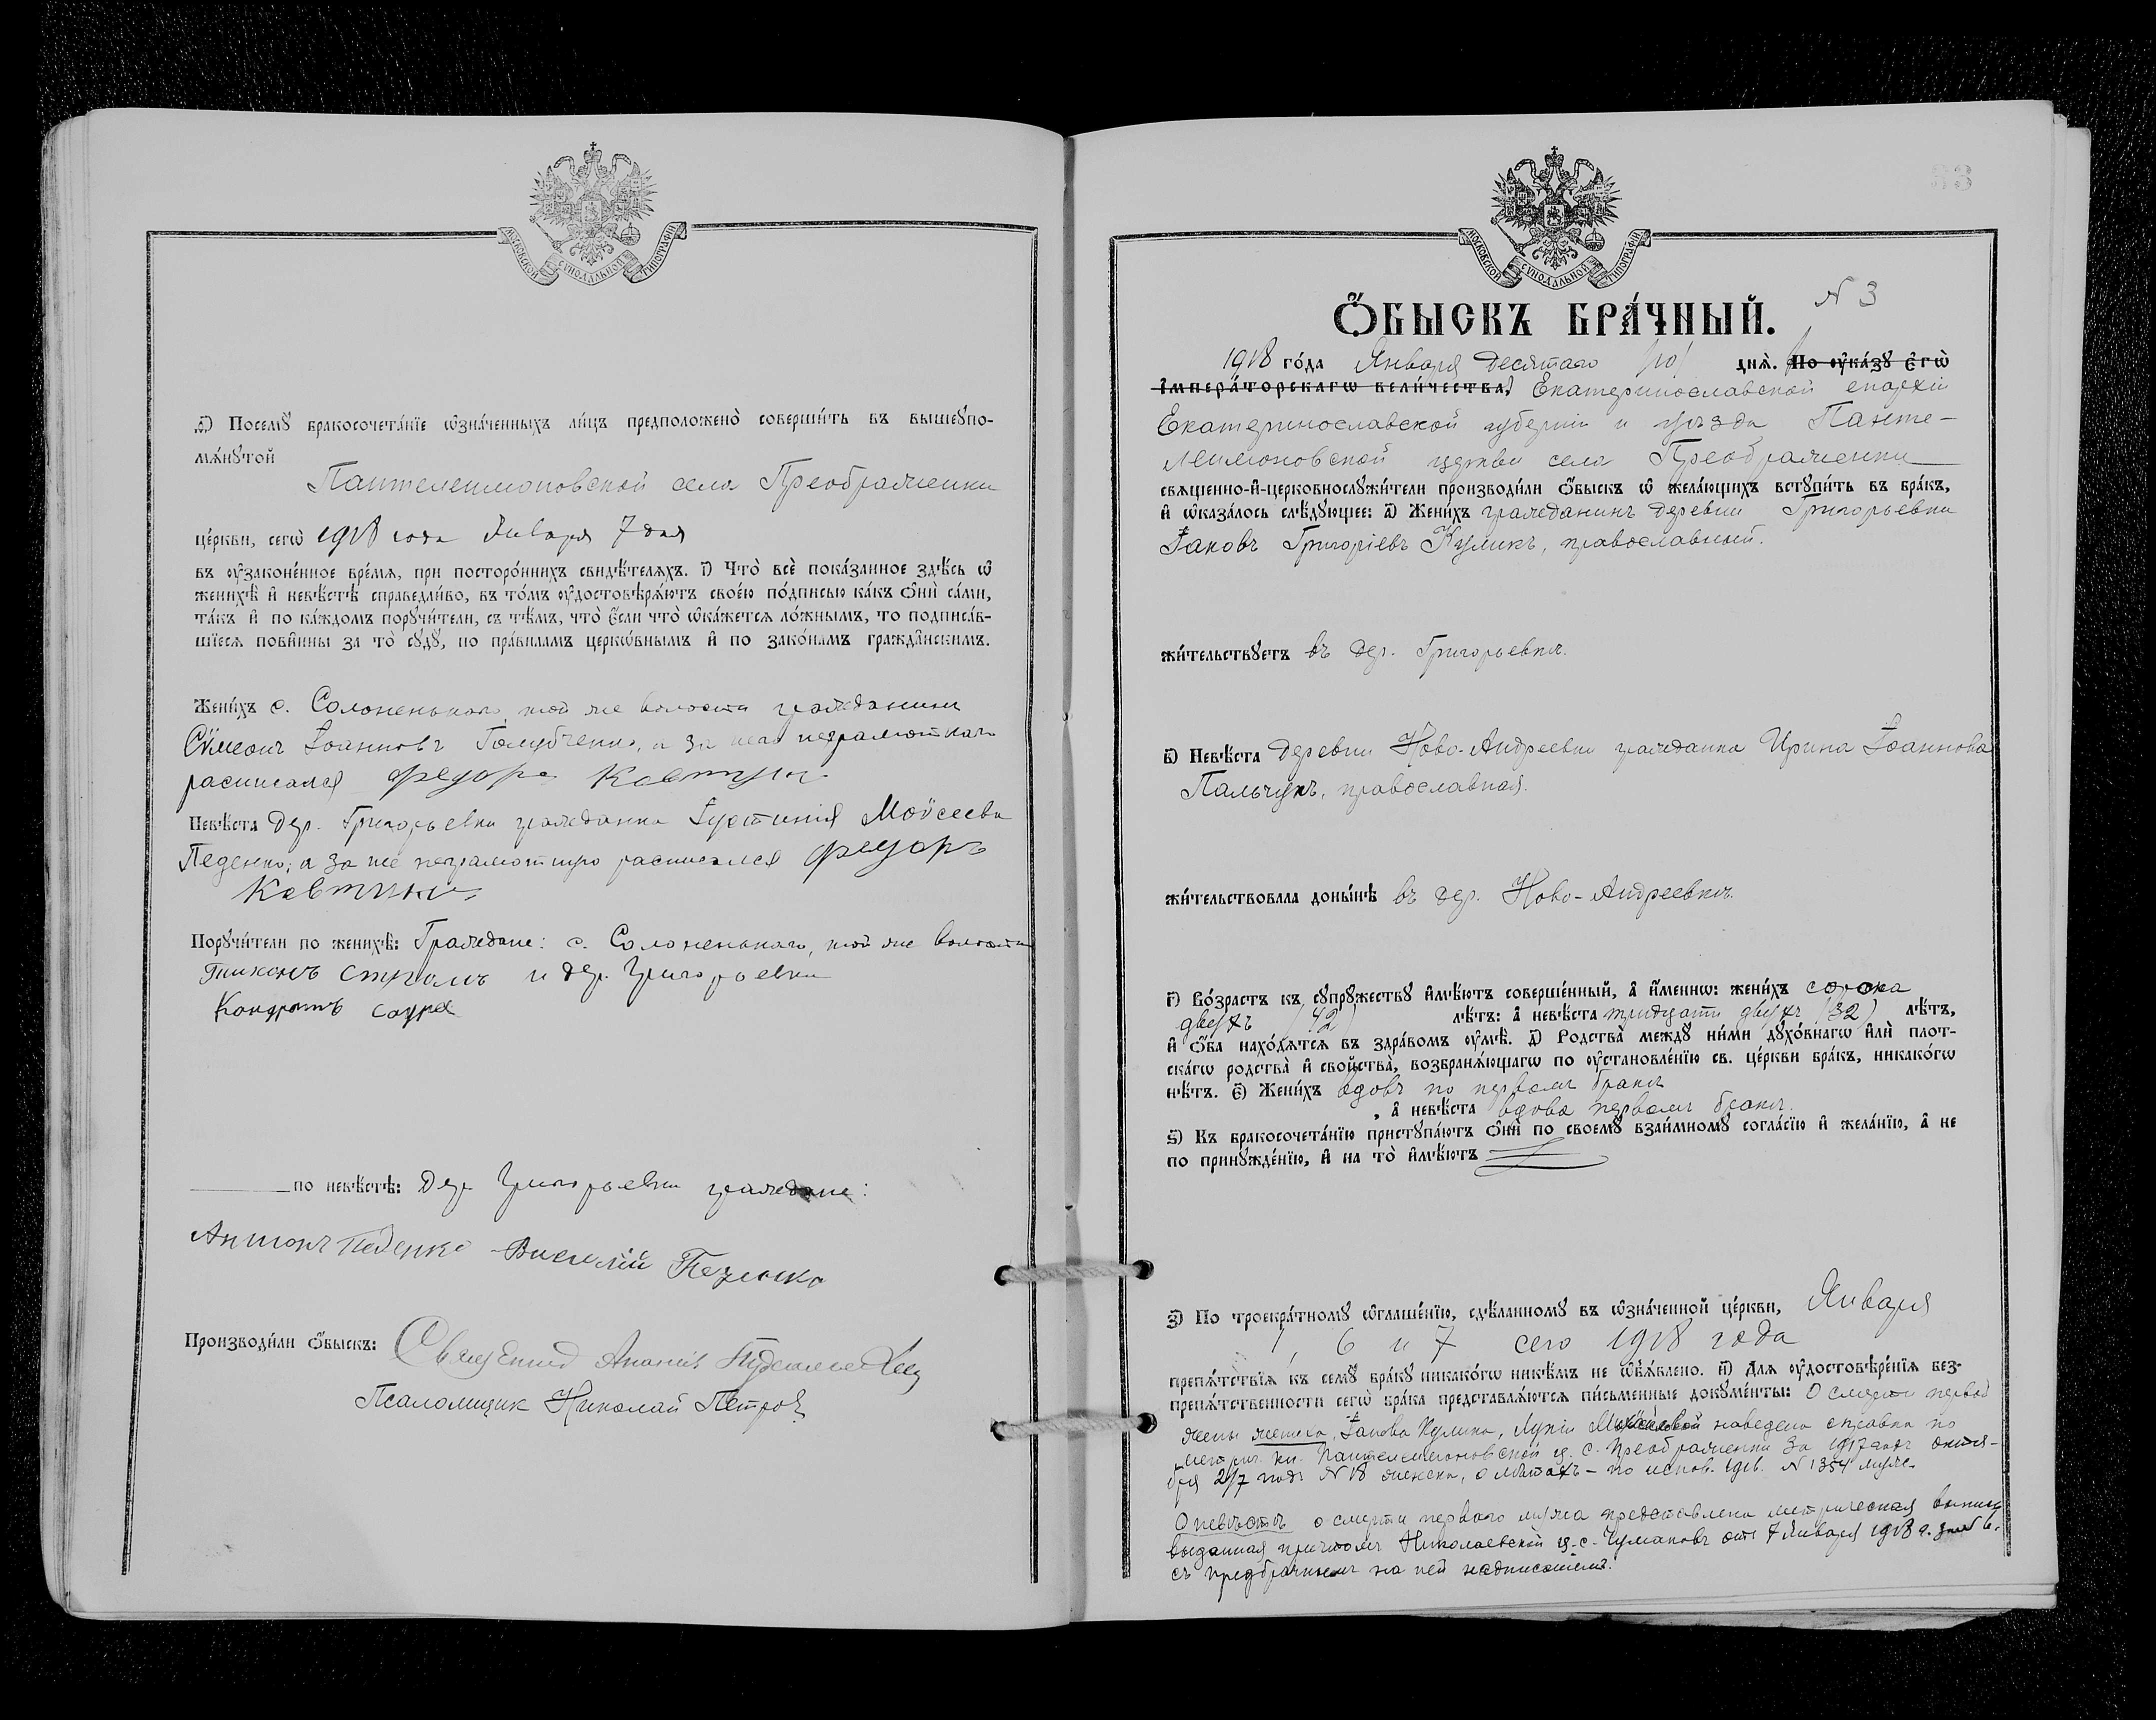 МОСКОВСКОЙ СѴНОДАЛЬНОЙ ТИПОГРАФІИ
Ѳ҃) Посемꙋ̀ бракосочета́нїе ѡ҆зна́ченныхъ ли́цъ предположено̀ соверши́ть въ вышеꙋпо-
мѧ́нꙋтой
Пантелеимоновской села Преображенки
це́ркви, сегѡ̀ 1918 года Января 7 дня
въ ᲂу҆зако́не́нное вре́мѧ, при посторо́ннихъ свидѣ́телѧхъ. І҃) Что̀ всѐ пока́занное здѣ́сь ѡ҆
женихѣ̀ и҆ невѣ́стѣ справедли́во, въ то́мъ ᲂу҆достовѣрѧ́ютъ свое́ю по́дписью ка́къ ѻ҆нѝ са́ми,
та́къ и҆ по ка́ждомъ порꙋчи́тели, съ тѣ́мъ, что̀ є҆́сли что̀ ѡ҆ка́жетсѧ ло́жнымъ, то подписа́в-
шїесѧ пови́нны за то̀ сꙋдꙋ̀, по пра́виламъ церко́внымъ и҆ по зако́намъ гражда́нскимъ.
Жени́хъ с. Солоненькаго, той же волости гражданинъ
Сѵмеонъ Іоанновъ Голубченко, а за него неграмотнаго
расписался Федоръ Ковтунъ
Невѣ́ста дер. Григорьевки гражданка Іустинія Моисеева
Педенко; а за нее неграмотную расписался Федоръ
Ковтунъ
Порꙋчи́тели по женихѣ̀: Граждане: с. Солоненькаго, той же волости
Тихонъ и дер. Григорьевки
Кондратъ
по невѣ́стѣ: Дер. Григорьевки граждане:
Антонъ Педенко Василій Педенко
Производи́ли ѻ҆́быскъ: Священникъ Ананій
Псаломщик Николай Петров
МОСКОВСКОЙ СѴНОДАЛЬНОЙ ТИПОГРАФІИ
N 3
Ѻ҆́БЫСКЪ БРА́ЧНЫЙ.
1918 го́да Января десятаго /10/ днѧ̀. По ᲂу҆ка́зꙋ є҆гѡ̀
і҆мпера́торскагѡ вели́чества, Екатеринославской епархіи
Екатеринославской губерніи и уѣзда Панте-
леимоновской церкви села Преображенки
свѧще́нно-и҆-церковнослꙋжи́тели производи́ли ѻ҆́быскъ ѡ҆ жела́ющихъ встꙋпи́ть въ бра́къ,
и҆ ѡ҆каза́лось слѣ́дꙋющее: а҃) Жени́хъ гражданинъ деревни Григорьевки
Іаковъ Григоріевъ Куликъ, православный.
жи́тельствꙋетъ въ дер. Григорьевкѣ.
в҃) Невѣ́ста деревни Ново-Андреевки гражданка Ирина Іоаннова
Пальчукъ, православная.
жи́тельствовала доны́нѣ въ дер. Ново-Андреевкѣ.
г҃) Во́зрастъ къ сꙋпрꙋ́жествꙋ и҆мѣ́ютъ соверше́нный, а҆ и҆́меннѡ: жени́хъ сорока
двухъ (42) лѣ́тъ: а҆ невѣ́ста тридцати двухъ (32) лѣ́тъ,
и҆ ѻ҆́ба нахо́дѧтсѧ въ здра́вомъ ᲂу҆мѣ̀. д҃) Родства̀ междꙋ̀ ни́ми дꙋхо́внагѡ и҆лѝ плот-
ска́гѡ родства̀ и҆ сво́йства̀, возбранѧ́ющагѡ по ᲂу҆становле́нїю св. це́ркви бра́къ, никако́гѡ
нѣ́тъ. є҃) Жени́хъ вдовъ по первомъ бракѣ
, а҆ невѣ́ста вдова первомъ бракѣ.
ѕ҃) Къ бракосочета́нїю пристꙋпа́ютъ ѻ҆нѝ по своемꙋ̀ взаи́мномꙋ согла́сїю и҆ жела́нїю, а҆ не
по принꙋжде́нїю, и҆ на то̀ и҆мѣ́ютъ
з҃) По троекра́тномꙋ ѡ҆глаше́нїю, сдѣ́ланномꙋ въ ѡ҆зна́ченной це́ркви, Января
1, 6 и 7 сего 1918 года
препѧ́тствїѧ къ семꙋ̀ бра́кꙋ никако́гѡ никѣ́мъ не ѡ҆б̾ѧ́влено. и҃) Длѧ ᲂу҆достовѣре́нїѧ без-
препѧ́тственности сегѡ̀ бра́ка представлѧ́ютсѧ пи́сьменные докꙋме́нты: О смерти первой
жены жениха, Іакова Кулика, Лукіи наведена справка по
метрич. кн. Пантелеимоновской ц. с. Преображенки за 1917 годъ октя-
бря 2/7 подъ N 18 женска, о лѣтахъ - по испов. 1916. N 1354 муж.
О невѣстѣ о смерти первого мужа представлена метрическая выпись
выданная причтомъ Николаевской ц. с. Чумаковъ отъ 7 Января 1918 г. за N 6.
съ предбрачнымъ на ней надписаніемъ.